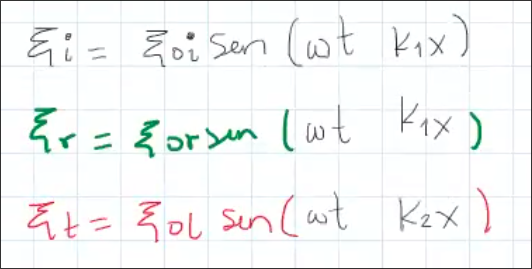 ξi = ξoi sen (ωt k₁x)
ξr = ξor sen (ωt k₁x)
ξt = ξoi sen (ωt k₂x)